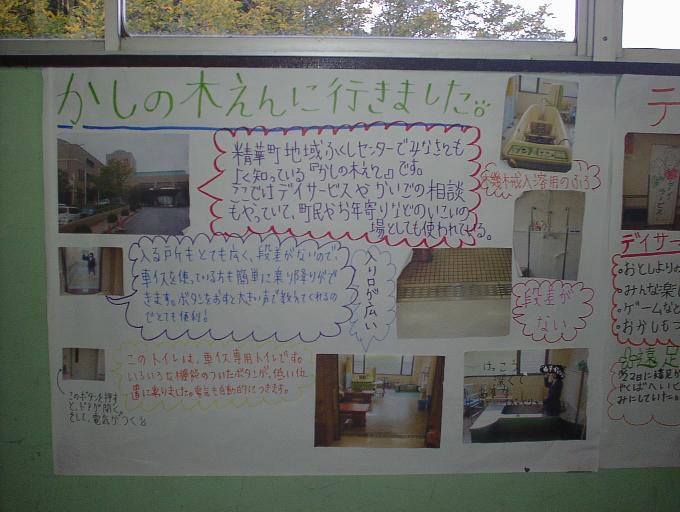 かしの木えんに行きました。
精華町地域ふくしセンターでみなさんも
よく知っている『かしの木えん』です。
ここではデイサービスやかいごの相談
もやっていて、町民やお年寄りなどのいこいの
場としても使われてる。
機械入浴用のふろ
入る戸所もとても広く、段差がないので、
車イスを使っている方も簡単に乗り降りがで
きます。ボタンをおすと大きい声で教えてくれるの
でとても便利!
入り口が広い
段差が
ない
このトイレは、車イス専用トイレです。
いろいろな機能のついたボタンが、低い位
置に有りました。電気も自動的につきます。
このボタンを押す
と、ドアが開く。
そして、電気がつく
デ
デイサー
おとしより
みんな楽し
ゲームなど
おかしもつ